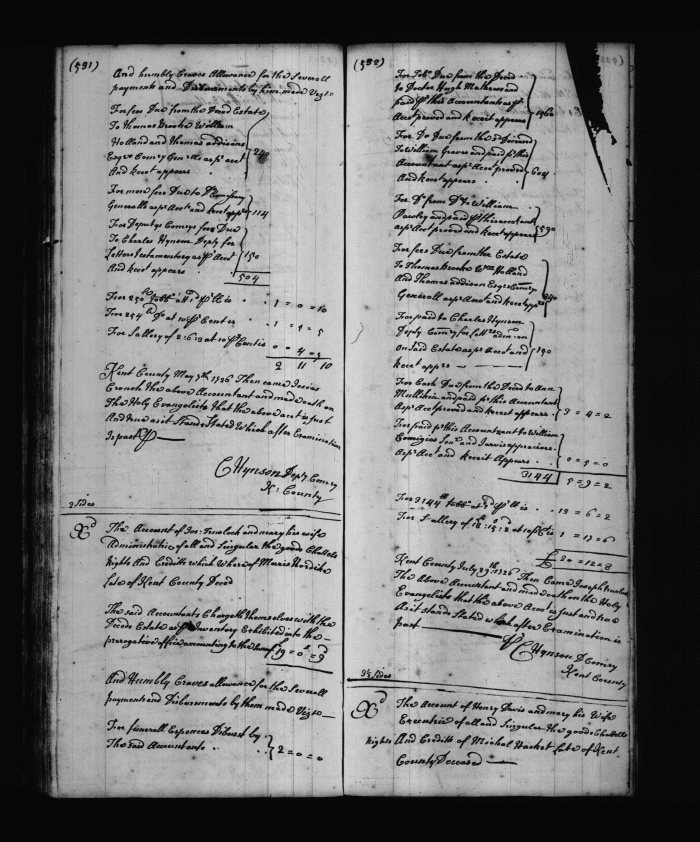 (531)
And humbly Craves Allowance for the Severall
payments and Disbursments by him made Vizt
For fees Due from the Decd Estate
To Thomas Brooke William
Holland and Thomas addisons
Esqrs Comry Genll as pr acct
And Rect appears
240
For more fees Due to Do Comissary
Generalls as pr Acct and Rect apprs
114
For Deputys Comrys fees Due
To Charles Hynson Depty for
Letters testamentary as pr Acct
And Rect appears
150
504
For 250 lb Tobb at 1d pr lb is
1 = 0 = 10
For 254 lb Do at 10 pr Cent is
1 = 1 = 5
For Sallery of at 10 pr Cent is
0 = 4 = 3
2 11 10
Kent County May 7th 1726 Then came Josias
Crouch the above Accountant and made oath on
The Holy Evangelists that the above acct is just
And true as it Stands Stated Which after Examination
Is past pr
C Hynson Depty Comry
K: County
3 Sides
Xd
The Account of Jos: Trulock and mary his wife
Administrix of all and Singular the goods Chattells
Rights And Credits which Where of Morris
Late of Kent County Decd
The said Accountants Chargeth themselves with the
Decds Estate as pr Inventory Exhibited into the
prerogative office amounting to the Sum of £19 = 0 = 9
And Humbly Craves allowance for the Severall
payments and Disbursments by them made Vizt
For funerall Expences Disburst by
The said Accountants
2 = 0 = 0
(532)
For Tobb Due from the Decd
to Doctor Hugh Mathews and
paid pr this Accountant as pr
Acct proved and Receet appears
1560
For Do Due from the Sd Deceased
To William Graves and paid pr this
Accountant as pr Acct proved
And Rect appears
604
For Do from Do To William
and paid pr this accountant
as pr Acct proved and Receet appears
For fees Due from the Estate
To Thomas Brooke Wm Holland
And Thomas addison Esqrs Comry
Generall as pr Acct and Rect appr
240
For paid to Charles Hynson
Depty Comry for Lettrs admon
on said Estate as pr Acct and
Receet appr
150
For Cash Due from the Decd to Ann
Mullikin and paid pr this Accountant
As pr Acct proved and Receet appears
3 = 4 = 2
For paid pr this Accountant to William
Comigies Senr and Jarvis appraisers
As pr Acct and Receit Appears
0 = 5 = 0
3144
5 = 9 = 2
For 3144 lb tobb at 1d pr lb is
13 = 6 = 2
For Sallery of at 10 pr Ct is
1 = 17 = 6
£ 20 = 12 = 8
Kent County July 29th 1726 Then Came Joseph Trulock
The Above Accountant and made oath on the Holy
Evangelists that the above Acct is Just and true
As it stands Stated which after Examination is
past
pr C Hynson D Comry
Kent County
3½ Sides
Xd
The Account of Henry Davis and mary his Wife
Executrix of all and Singular the goods Chattells
Rights And Credits of Michal Hacket Late of Kent
County Deceased